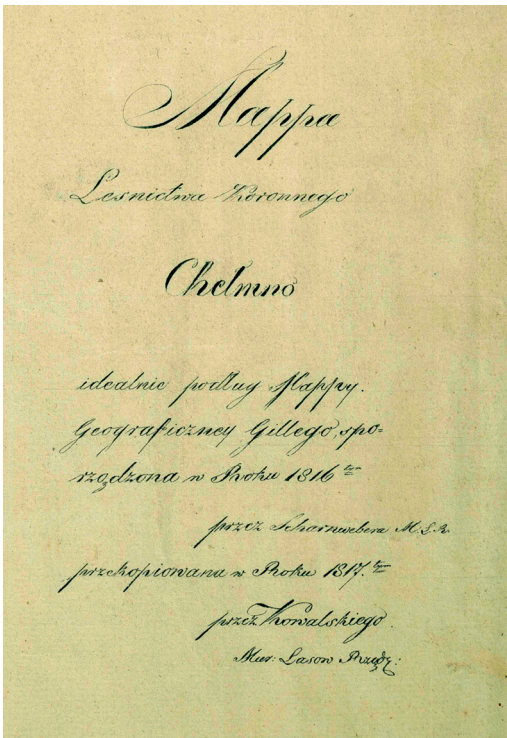 Mappa
Lesnictwa Koronnego
Chełmno
idealnie podług Mappy.
Geograficzney Gillego, spo=
rządzona w Roku 1816 tym
przez Scharnwebera M. S. R.
przekopiowana w Roku 1817. tym
przez Kowalskiego.
Lasow Rządz: